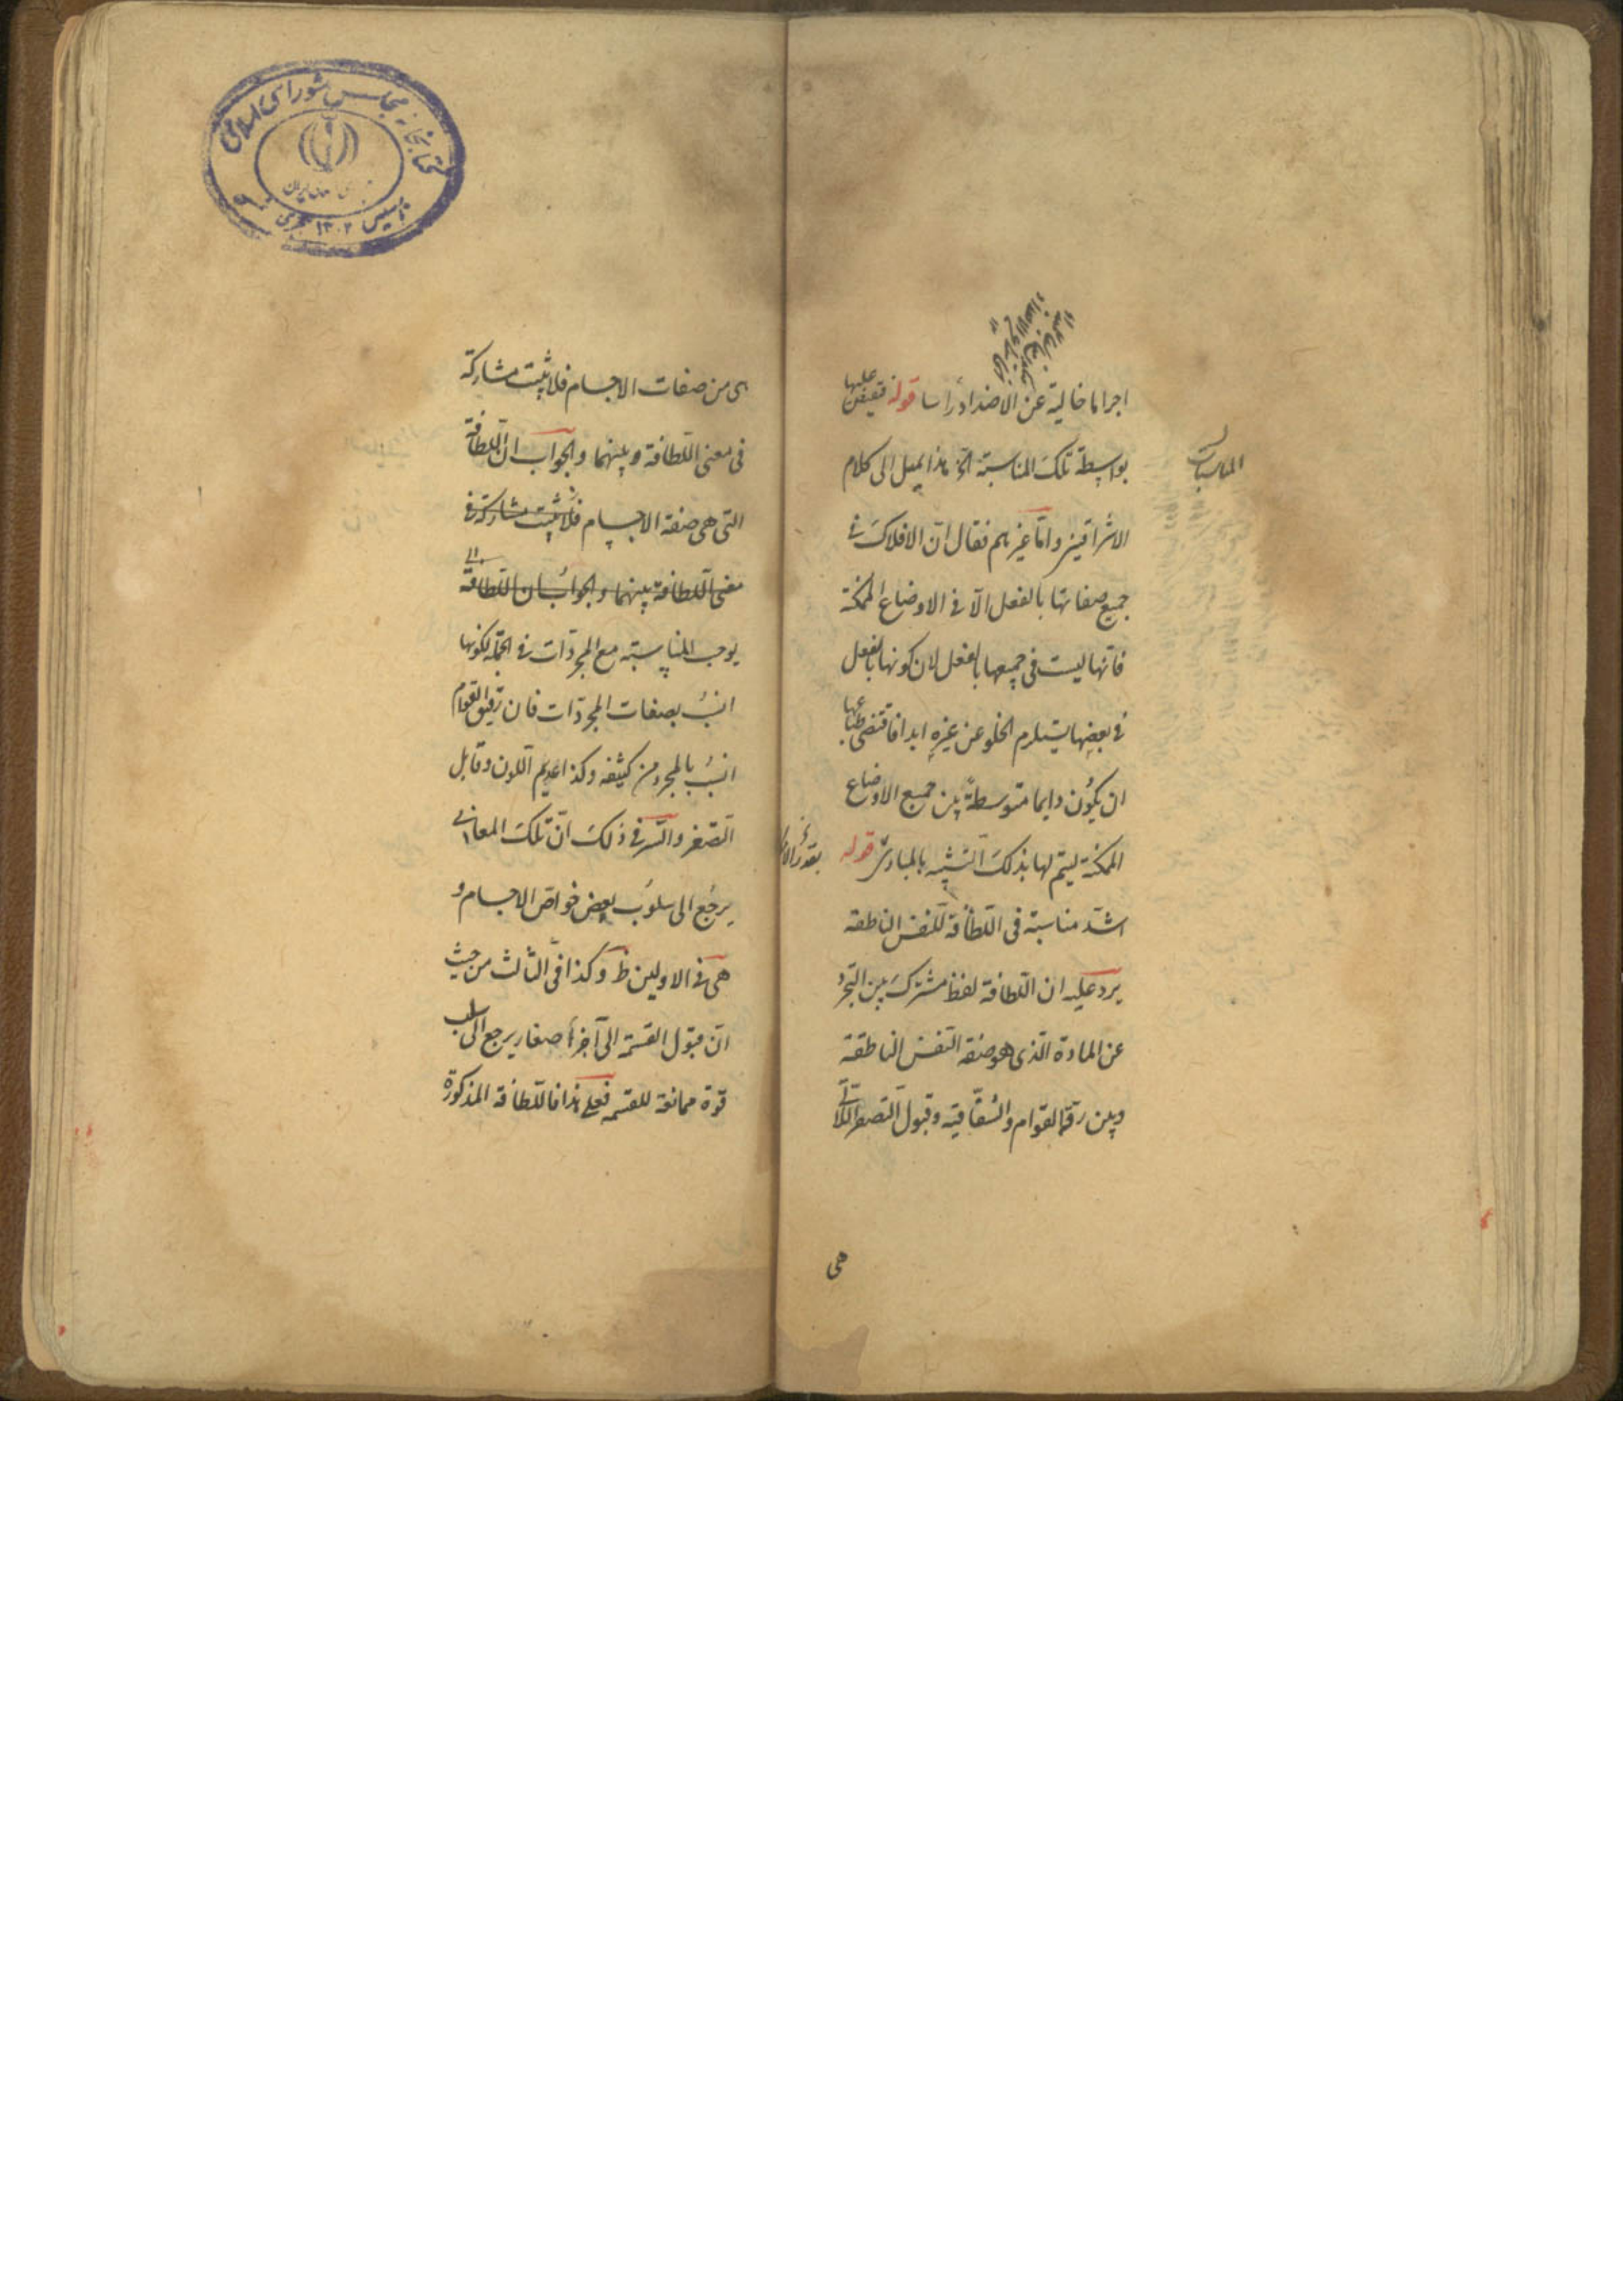 اجراما خالية عن الاضداد رأسا قوله فيفيض عليها
بواسطة تلك المناسبة الخ هذا يميل الى كلام
المناسبات
الاشراقيين واما غيرهم فقال ان الافلاك في
جميع صفاتها بالفعل الا في الاوضاع الممكنة
فانها ليست في جميعها بالفعل لان كونها بالفعل
في بعضها يستلزم الخلو عن غيره ابدا فاقتضى طباعها
ان يكون دايما متوسطة بين جميع الاوضاع
الممكنة ليتم لها بذلك التشبه بالمبادى قوله
اشد مناسبة في اللطافة للنفس الناطقه
يرد عليه ان اللطافة لفظ مشترك بين التجرد
عن المادة الذى هو صفة النفس الناطقة
وبين رقة القوام والشفافية وقبول التصغر اللاتى
هى
هى من صفات الاجسام فلا يثبت مشاركة
في معنى اللطافة وبينهما والجواب ان اللطافة
التى هى صفة الاجسام فلا يثبت مشاركة في
معنى اللطافة بينهما والجواب ان اللطافة
يوجب المناسبة مع المجردات في الجملة لكونها
انسب بصفات المجردات فان رقيق القوام
انسب بالمجرد من كثيفه وكذا عديم اللون وقابل
التصغر والسر في ذلك ان تلك المعانى
يرجع الى سلوب بعض خواص الاجسام و
هى في الاولين ظ وكذا في الثالث من حيث
ان قبول القسمة الى آجزأ صغار يرجع الى سلب
قوة ممانعة للقسمه فعلى هذا فاللطافة المذكورة
كتابخانه مجلس شوراى اسلامى
تاسيس ١٣٠٢ هجرى